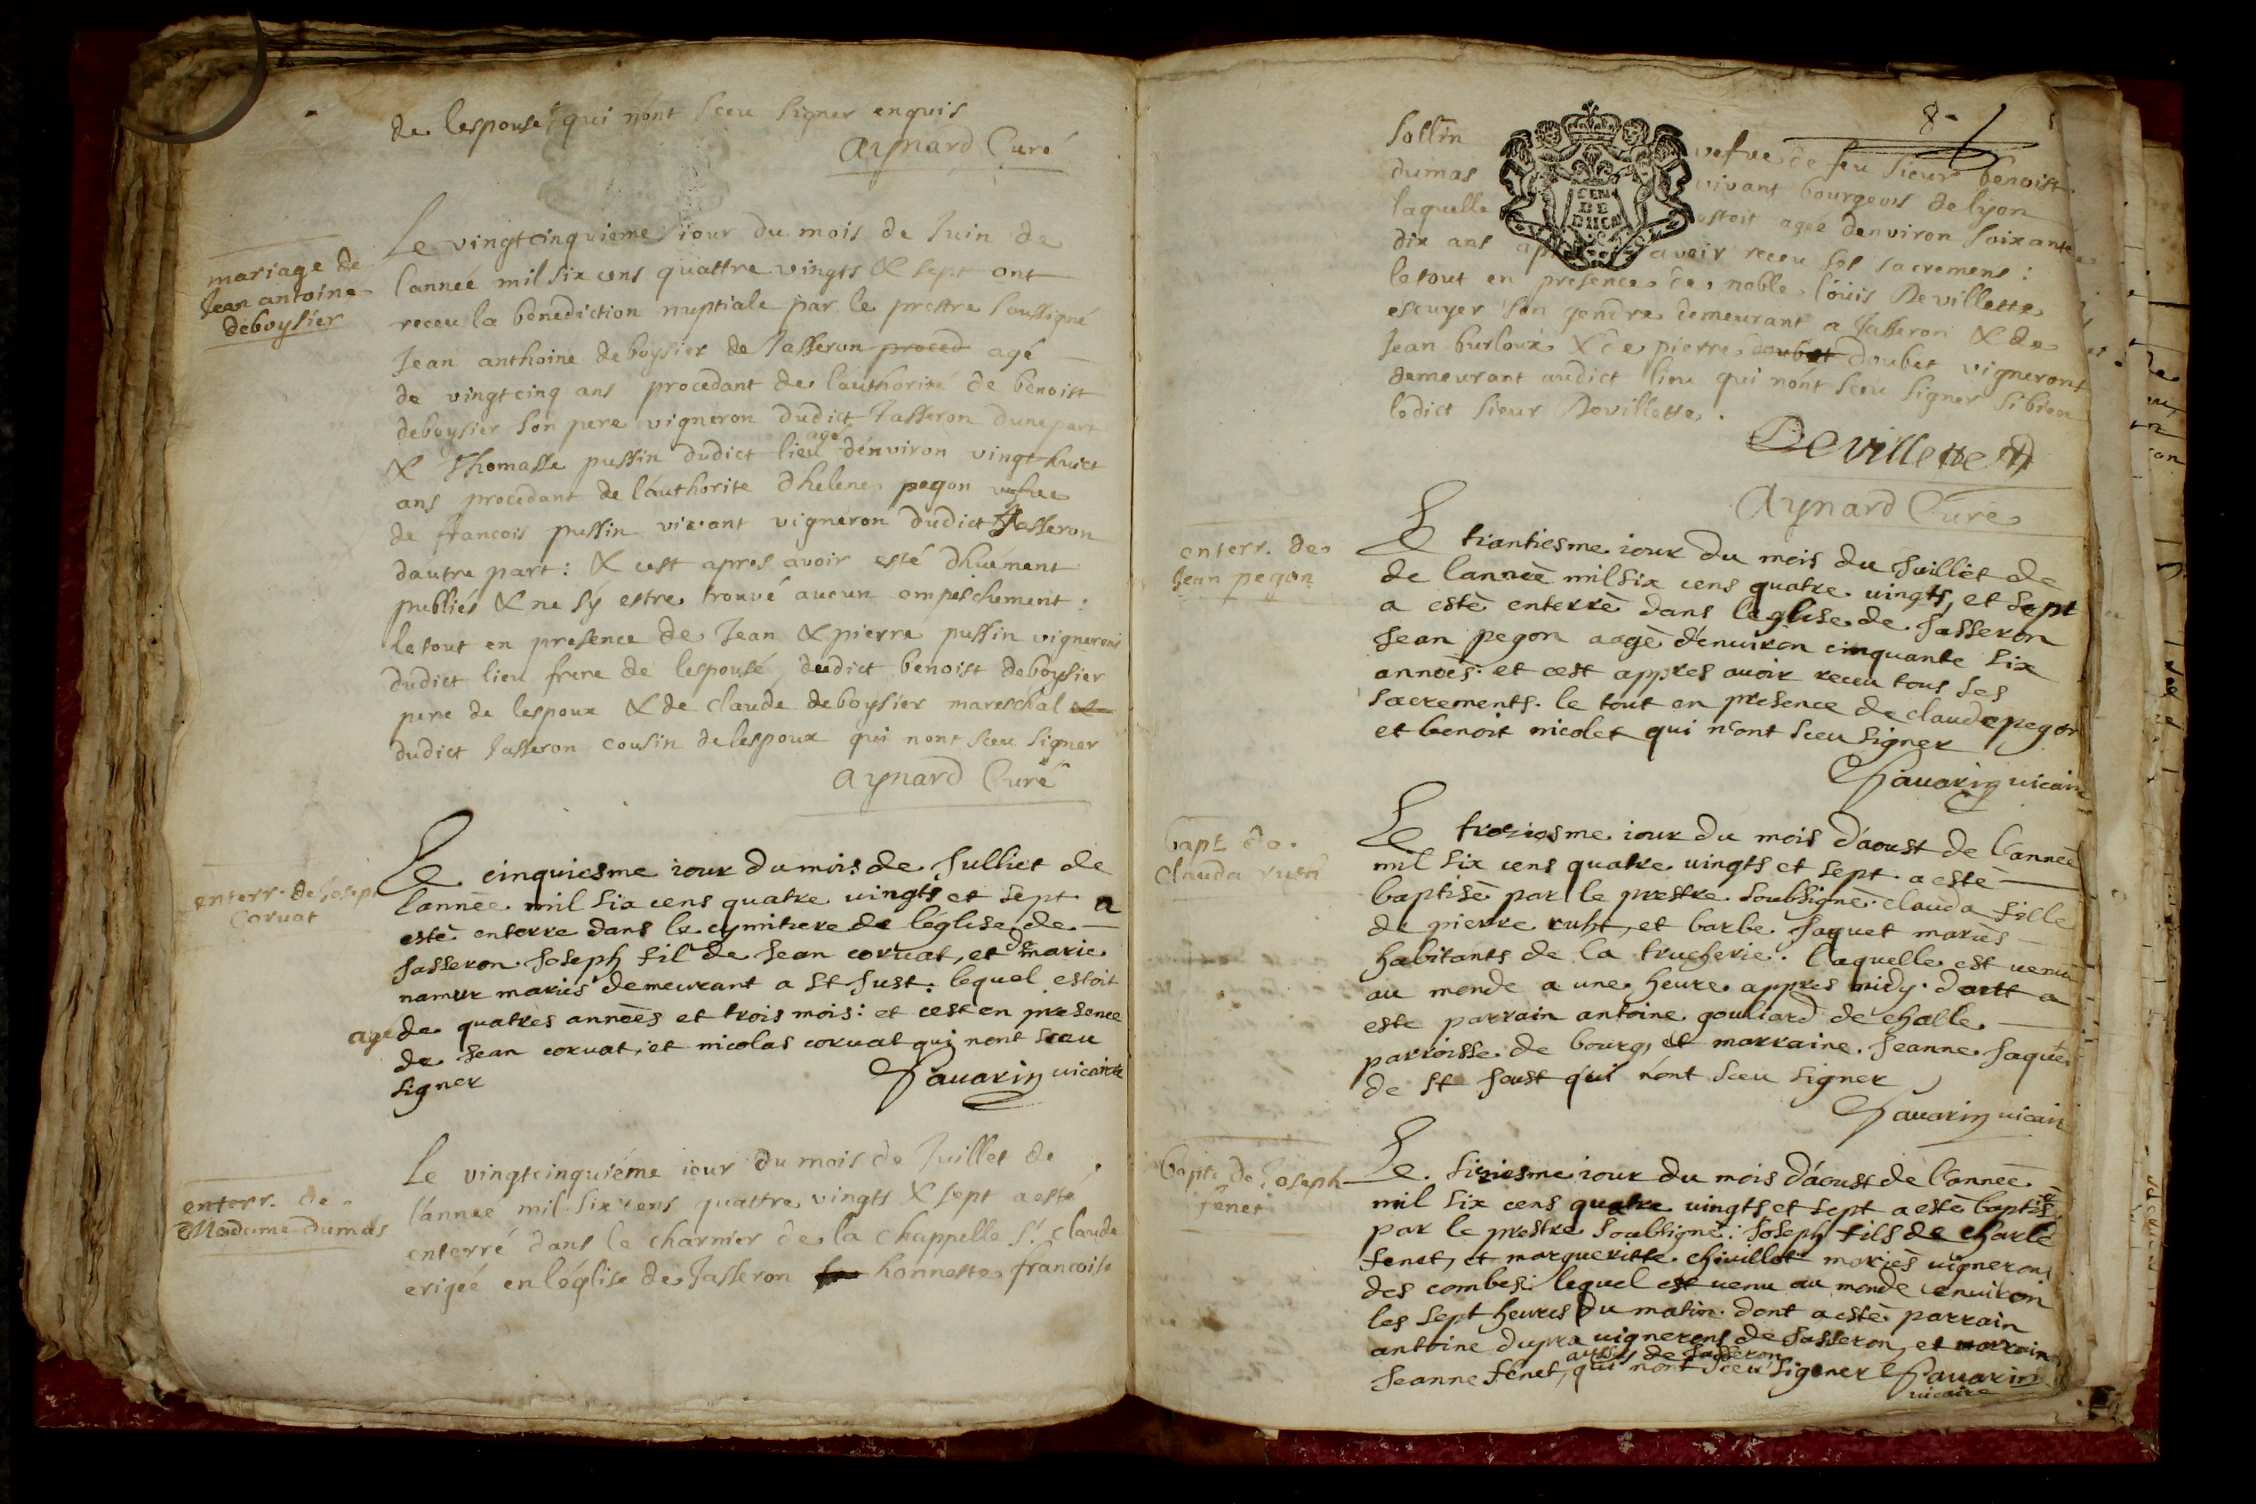 de lespouse qui nont sceu signer enquis
Aynard Curé
mariage de
Jean antoine
deboysier
Le vingtcinquieme iour du mois de Juin de
lanneé mil six cens quattre vingts & sept ont
receu la benediction nuptiale par le prestre soussigné
Jean anthoine deboysier de Jasseron proced agé
de vingtcinq ans procedant de lauthorité de benoist
deboysier son pere vigneron dudict Jasseron dune part
& Thomasse pussin dudict lieu agé denviron vingt huict
ans procedant de lauthorite dhelene pegon vefve
de francois pussin vivant vigneron dudict Jasseron
dautre part : & cest apres avoir esté dhuement
publiés & ne sy estre trouvé aucun empeschement :
le tout en presence de Jean & pierre pussin vignerons
dudict lieu frere de lespousé, dudict benoist deboysier
pere de lespoux & de claude deboysier mareschal
dudict Jasseron cousin de lespoux qui nont sceu signer
Aynard Curé
enterr. de Joseph
Corvat
Le cinquiesme iour du mois de Julliet de
lanneè mil six cens quatre vingts et sept a
estè enterre dans le cymitiere de léglise de
Jasseron Joseph fil de Jean coruat, et de marie
namur mariés demeurant a st Just. lequel estoit
agé de quatres anneès et trois mois : et cest en presence
de Jean coruat, et nicolas coruat qui nont sceu
signer
Sauarin uicaire
enterr. de
Madame dumas
Le vingtcinquiéme iour du mois de Juillet de
lánnee mil six cens quattre vingts & sept a esté
enterré dans le charnier de la chappelle St claude
erigéé en léglise de Jasseron honneste francoise
8
sollin vefve de feu sieur benoist
dumas vivant bourgeois de lyon
laquelle estoit ageé denviron soixante
dix ans avoir receu ses sacremens :
le tout en presence de noble loüis Devillette
escuyer son gendre demeurant a Jasseron & de
Jean burloux & de pierre doubet doubet vignerons
demeurant audict lieu qui nont sceu signer si bien
ledict sieur Devillette.
Devillette
Aynard Curé
enterr. de
Jean pegon
Le trantiesme iour du mois du Juillet de
de lanneè mil six cens quatre uingts, et sept
a estè enterrè dans leglise de Jasseron
Jean pegon aagè d'enuiron cinquante six
anneès : et cest appres auoir receu tous ses
sacrements. le tout en presence de claude pegon
et benoit nicolet qui n'ont sceu signer
Sauarin uicaire
bapt. de
Clauda
Le troziosme iour du mois d'aoust de l'anneè
mil six cens quatre uingts et sept a estè
baptisè par le prestre soubsignè clauda fille
de pierre ruht, et barbe Jaquet mariès
habitants de la trucherie. laquelle est uenü
au monde a une heure appres midy. dont a
este parrain antoine gouliard de challe
parroisse de bourg, et marraine Jeanne Jaquet
de st Joust qui n'ont sceu signer
Sauarin uicaire
bapt. de Joseph
fenet
Le siziesme iour du mois d'aoust de l'anneè
mil six cens quatre uingts, et sept a estè baptisè
par le prestre soubsignè : Joseph fils de charle
fenet, et margueritte chivillot mariès uignerons
des combes : lequel est uenu au monde enuiron
les sept heures du matin. dont a estè parrain
antoine dupra uignerons de Jasseron, et marraine
aussy de Jasseron
Jeanne fenet, qui nont sceu signer Sauarin
uicaire